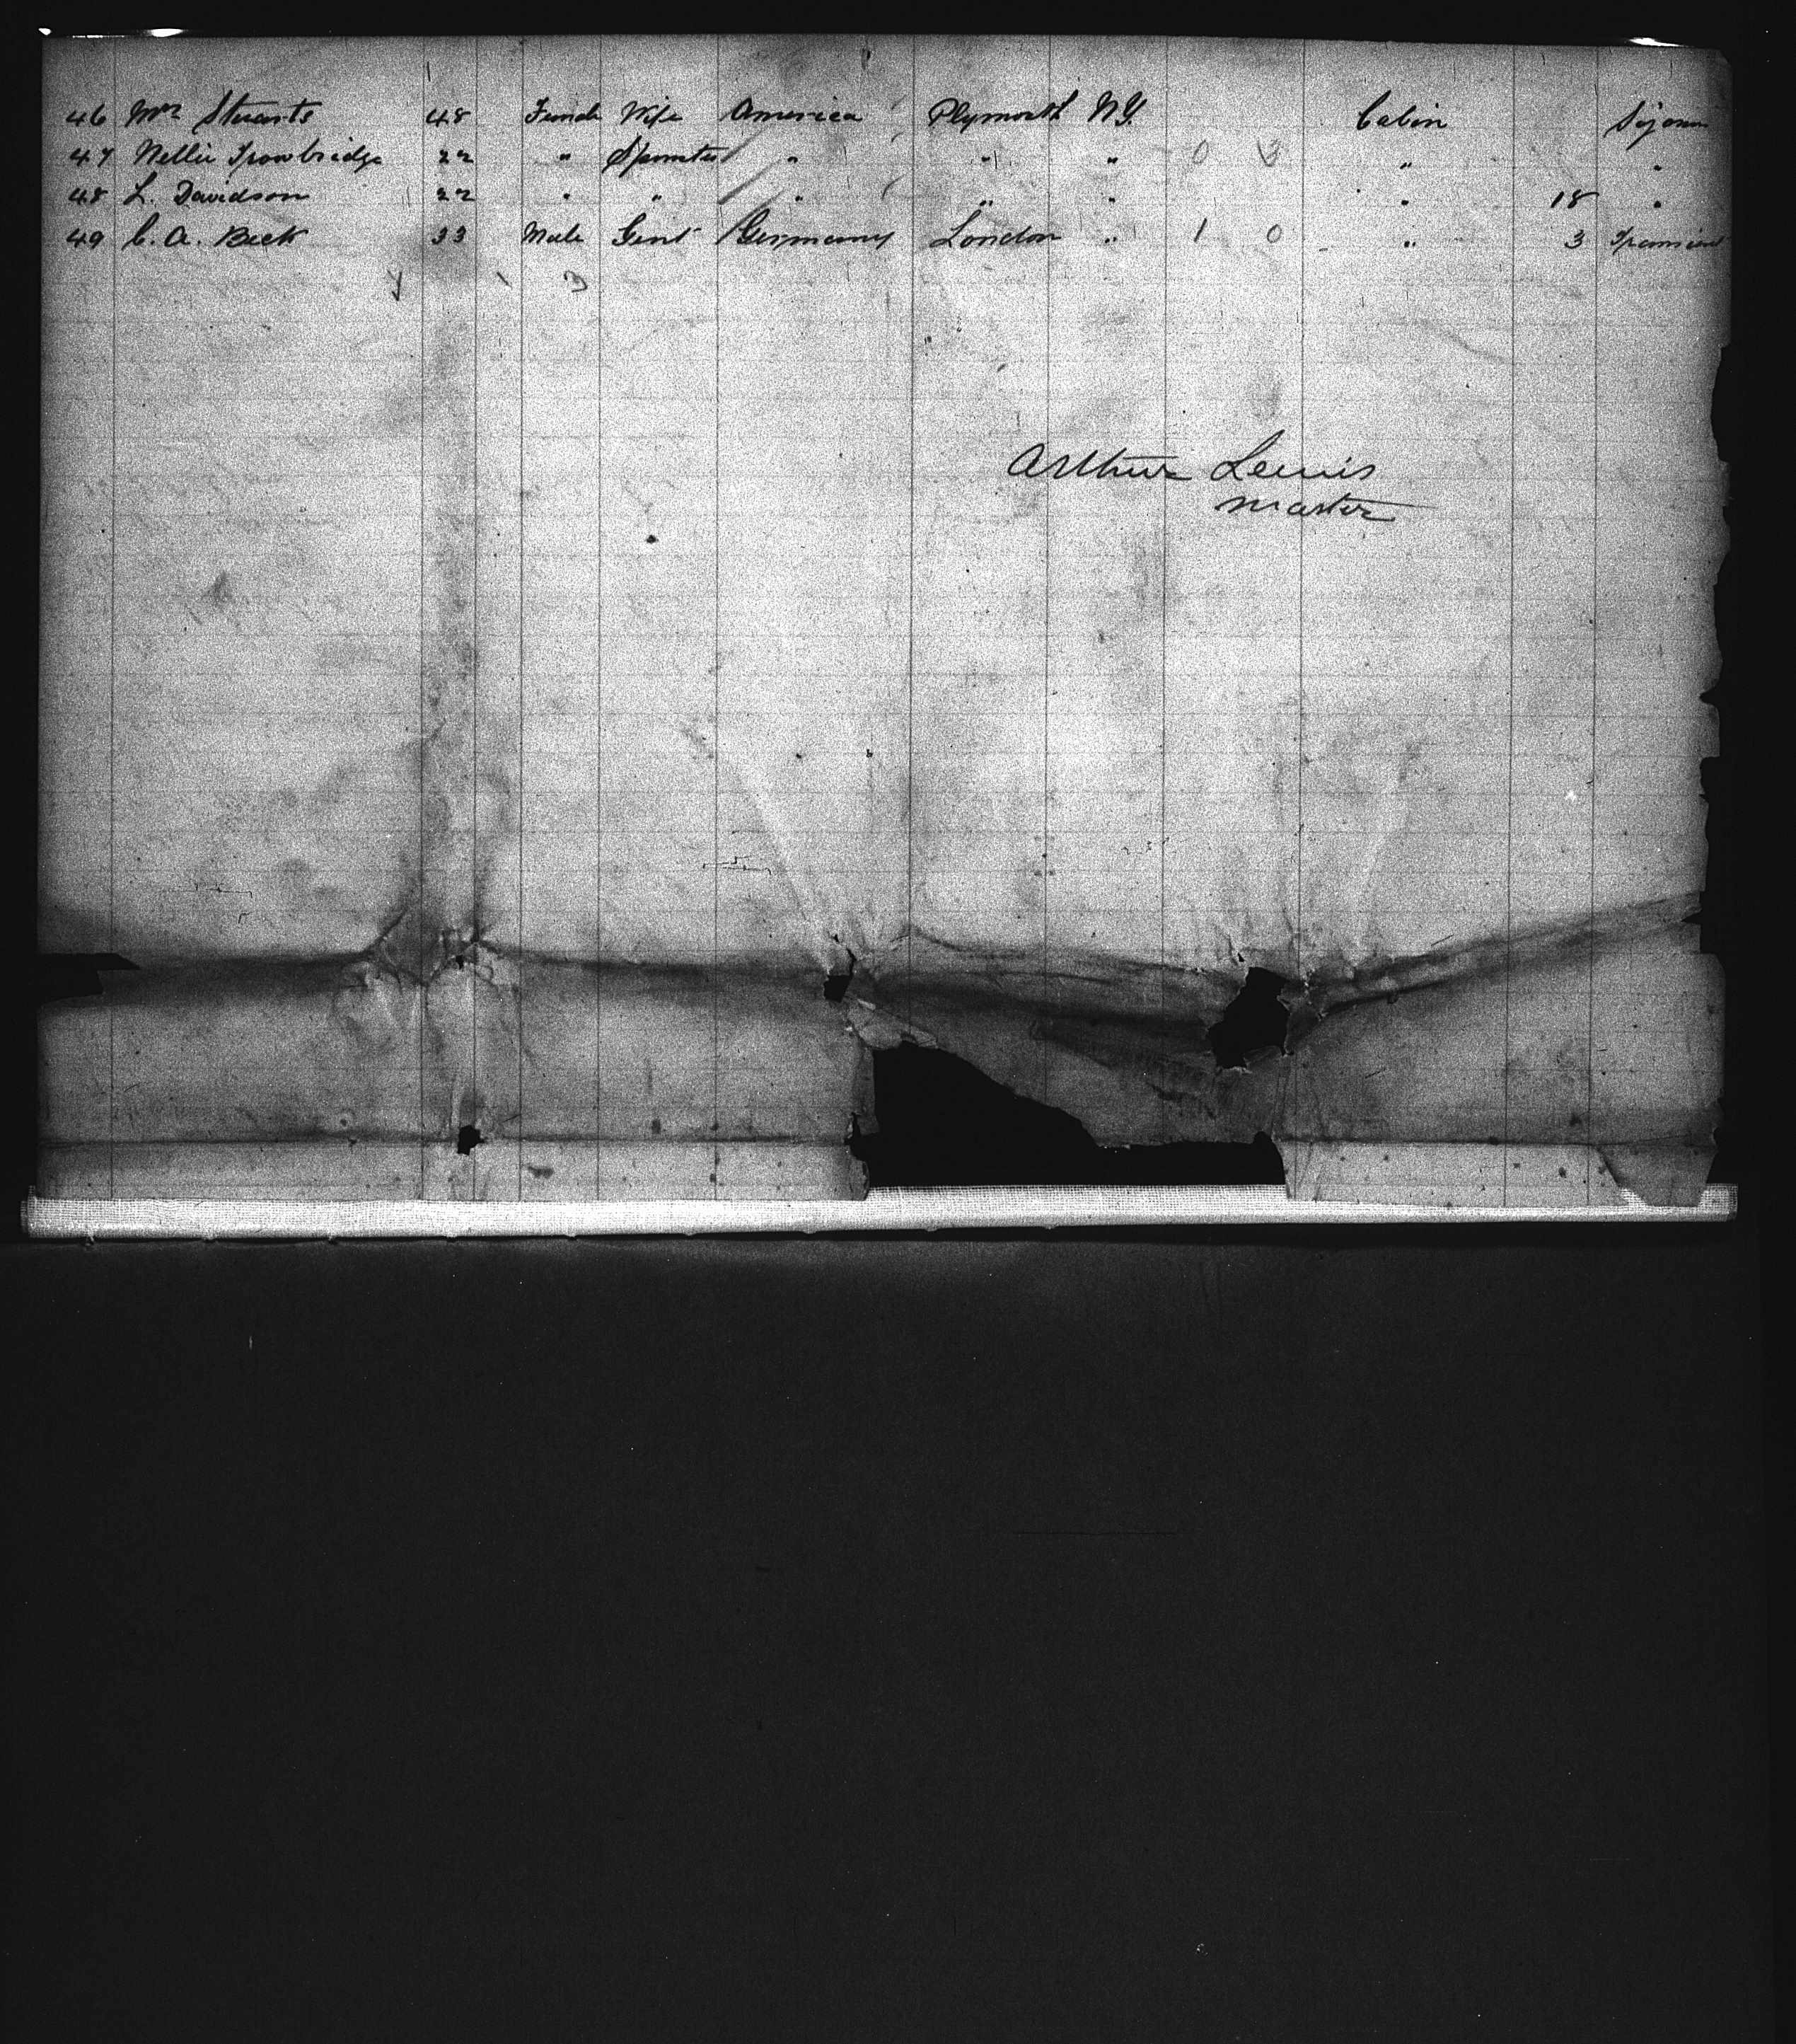 46 Mrs Stuarts 48 Female Wife America Plymouth N.Y. Cabin Sojourn
47 Nellie Trowbridge 22 " Spinster " " " 0 3 " "
48 L. Davidson 22 " " " " " " 18 "
49 C. A. Beck 33 Male Gent Germany London " 1 0 " 3 Transient
Arthur Lewis
Master